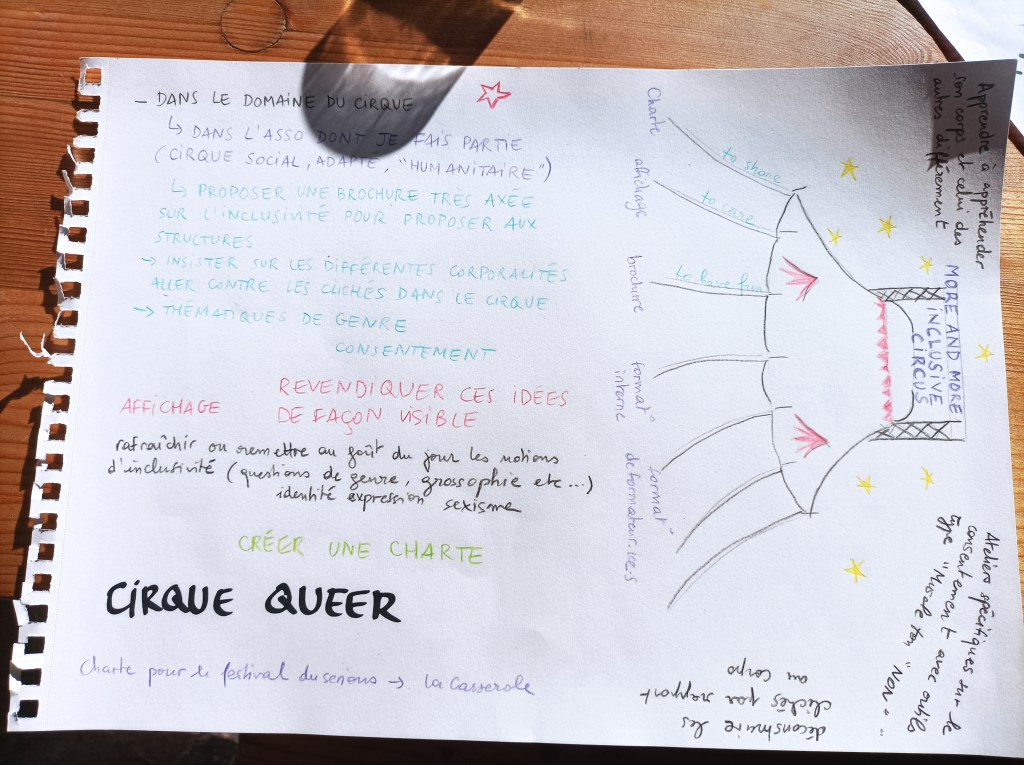 - DANS LE DOMAINE DU CIRQUE
↳ DANS L'ASSO DONT JE FAIS PARTIE
(CIRQUE SOCIAL, ADAPTÉ, "HUMANITAIRE")
↳ PROPOSER UNE BROCHURE TRÈS AXÉE
SUR L'INCLUSIVITÉ POUR PROPOSER AUX
STRUCTURES
→ INSISTER SUR LES DIFFÉRENTES CORPORALITÉS
ALLER CONTRE LES CLICHÉS DANS LE CIRQUE
→ THÉMATIQUES DE GENRE
CONSENTEMENT
AFFICHAGE
REVENDIQUER CES IDÉES
DE FAÇON VISIBLE
rafraîchir ou remettre au goût du jour les notions
d'inclusivité (questions de genre, grossophie etc...)
identité expression sexisme
CRÉER UNE CHARTE
CIRQUE QUEER
Charte pour le festival → la Casserole
Charte
affichage
brochure
format°
interne
format°
de formateur.ice.s
to share
to care
to have fun
MORE AND MORE
INCLUSIVE
CIRCUS
Apprendre à appréhender
son corps et celui des
autres différement
Ateliers spécifiques sur le
consentement avec outils
type "Muscle ton "NON"
déconstruire les
clichés par rapport
au corps